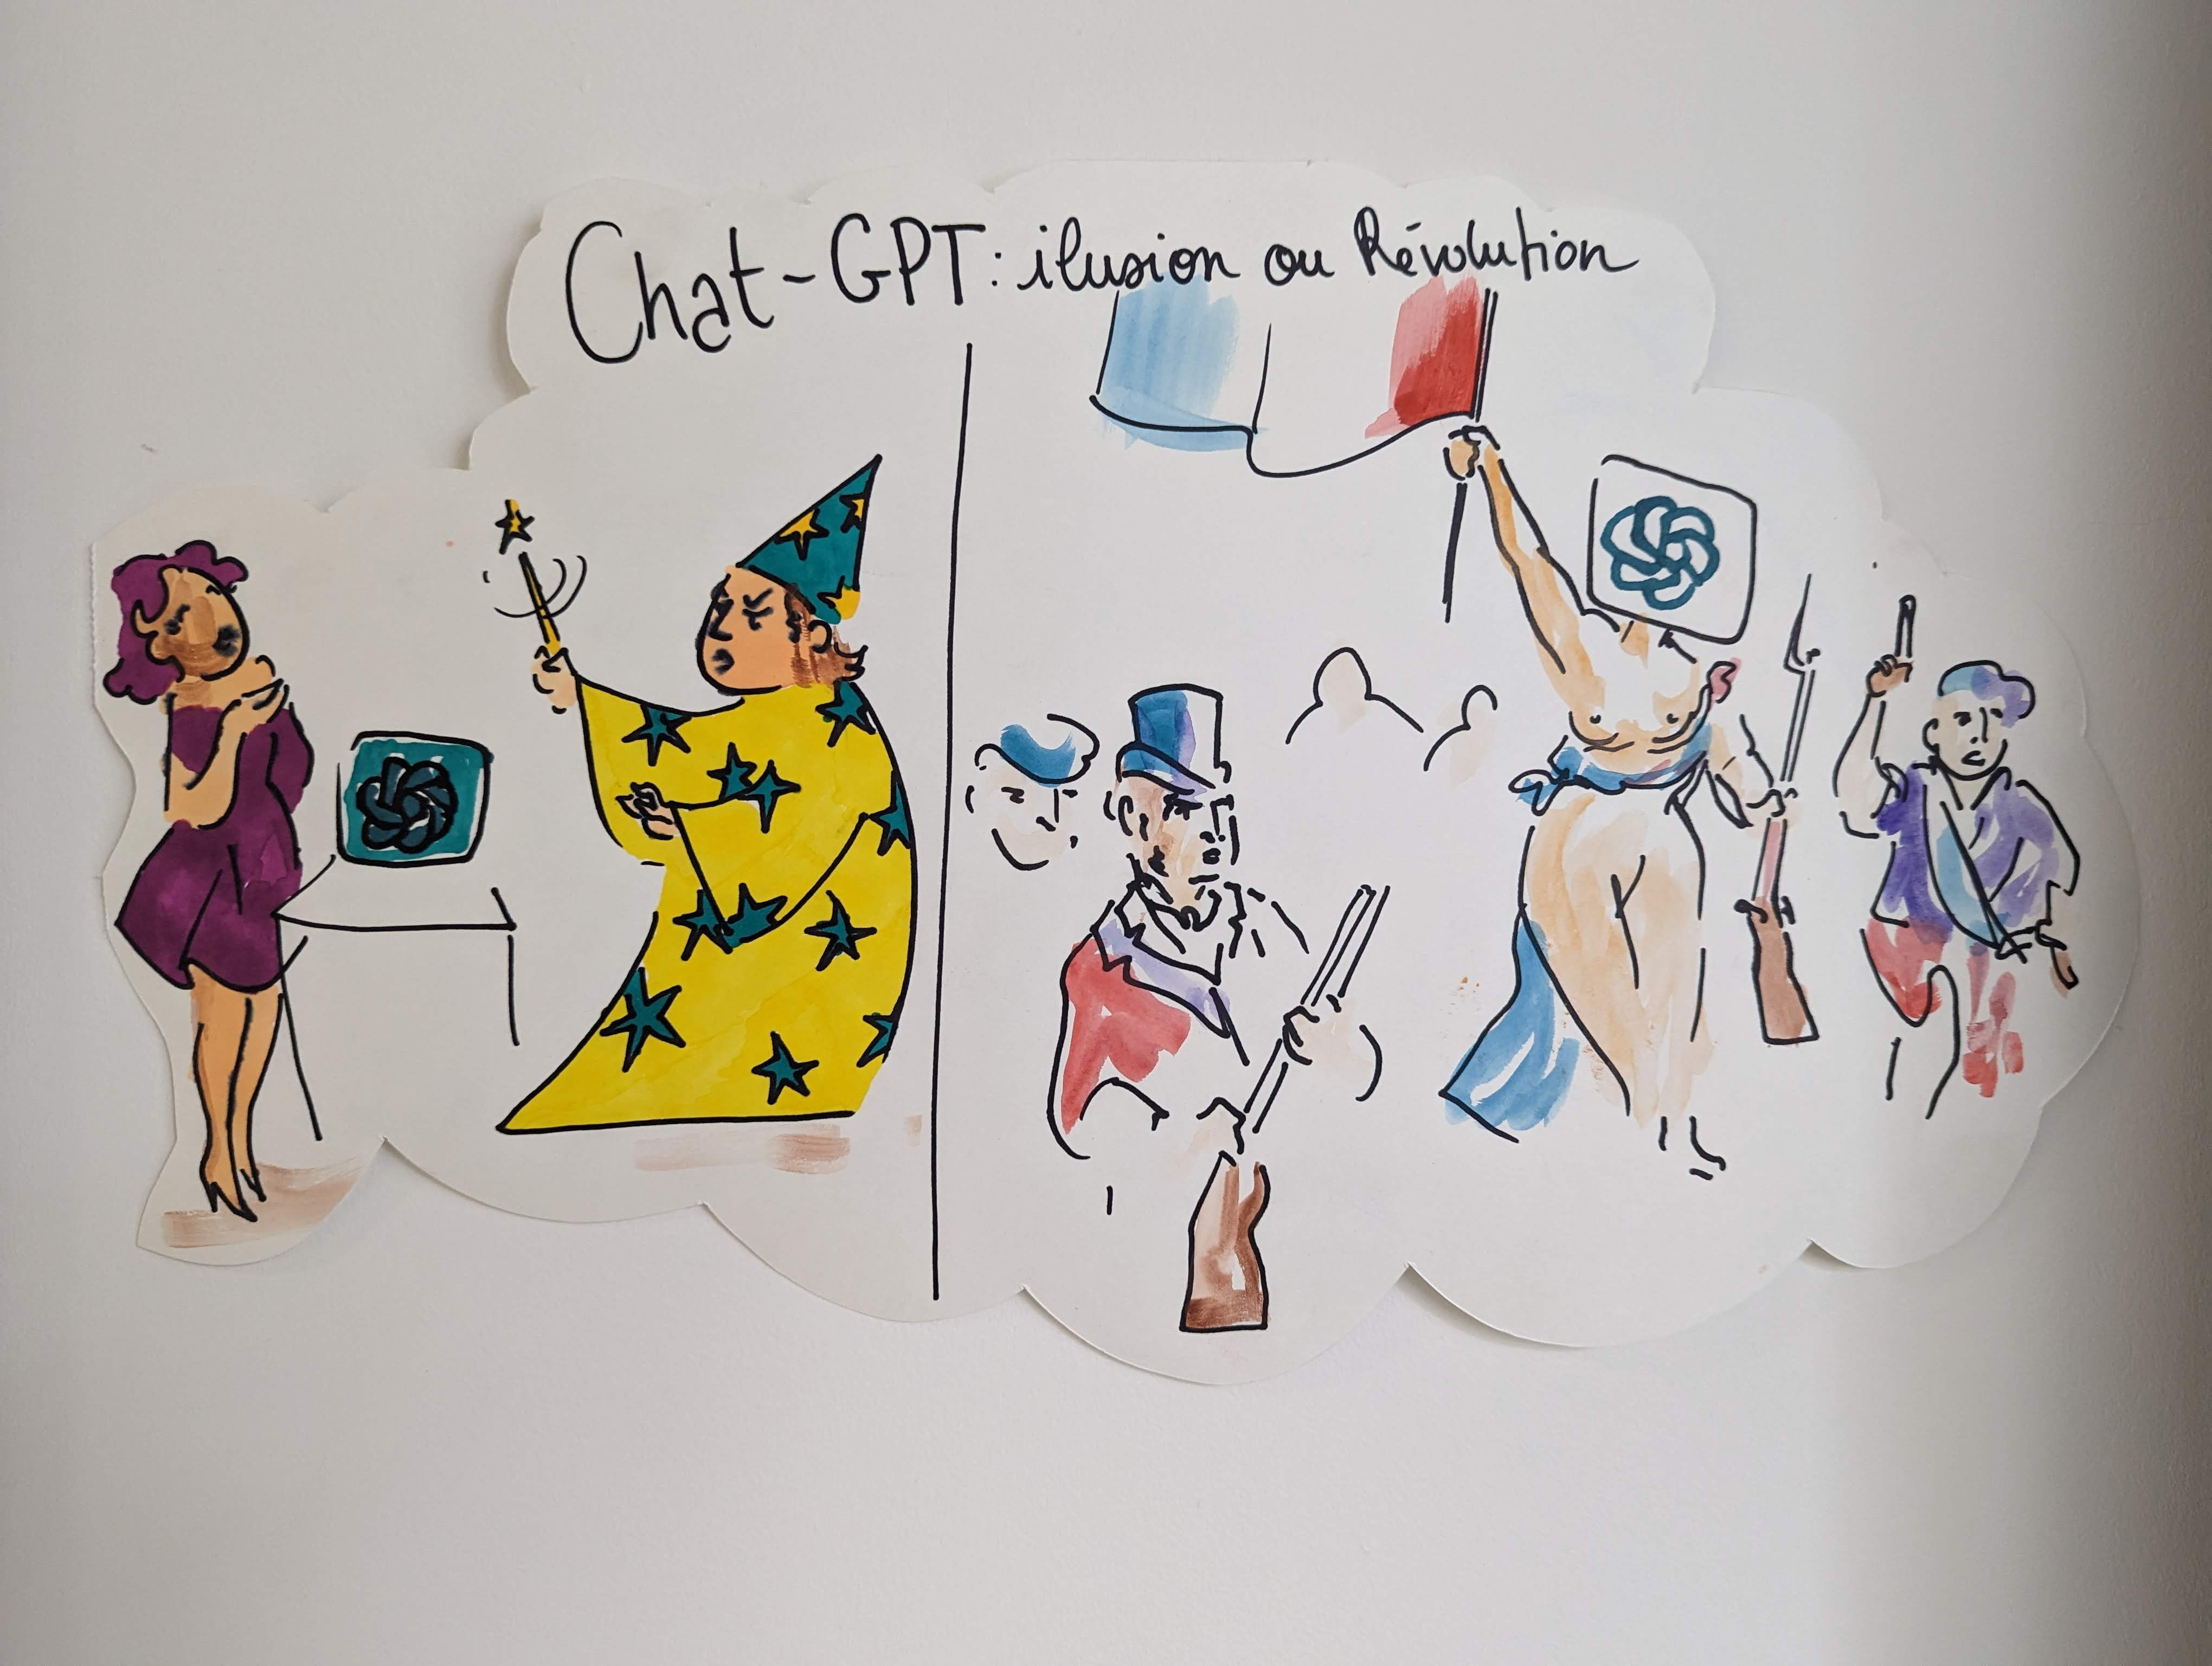 Chat-GPT: ilusion ou Révolution